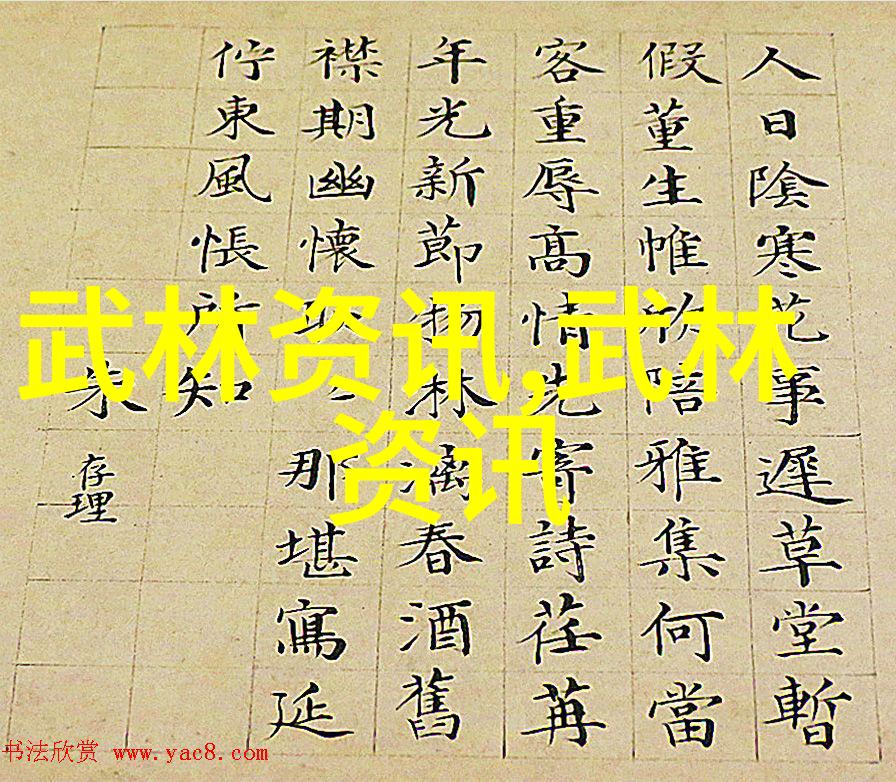 人日陰寒花事遲草堂暫
假董生帷欣陪雅集何當
客重辱高情先寄詩荏苒
年光新節物淋漓春酒舊
襟期幽懷耿〻那堪寫延
佇東風悵所知
朱存理
武林资讯,武林
资讯
书法欣赏 www.yac8.com